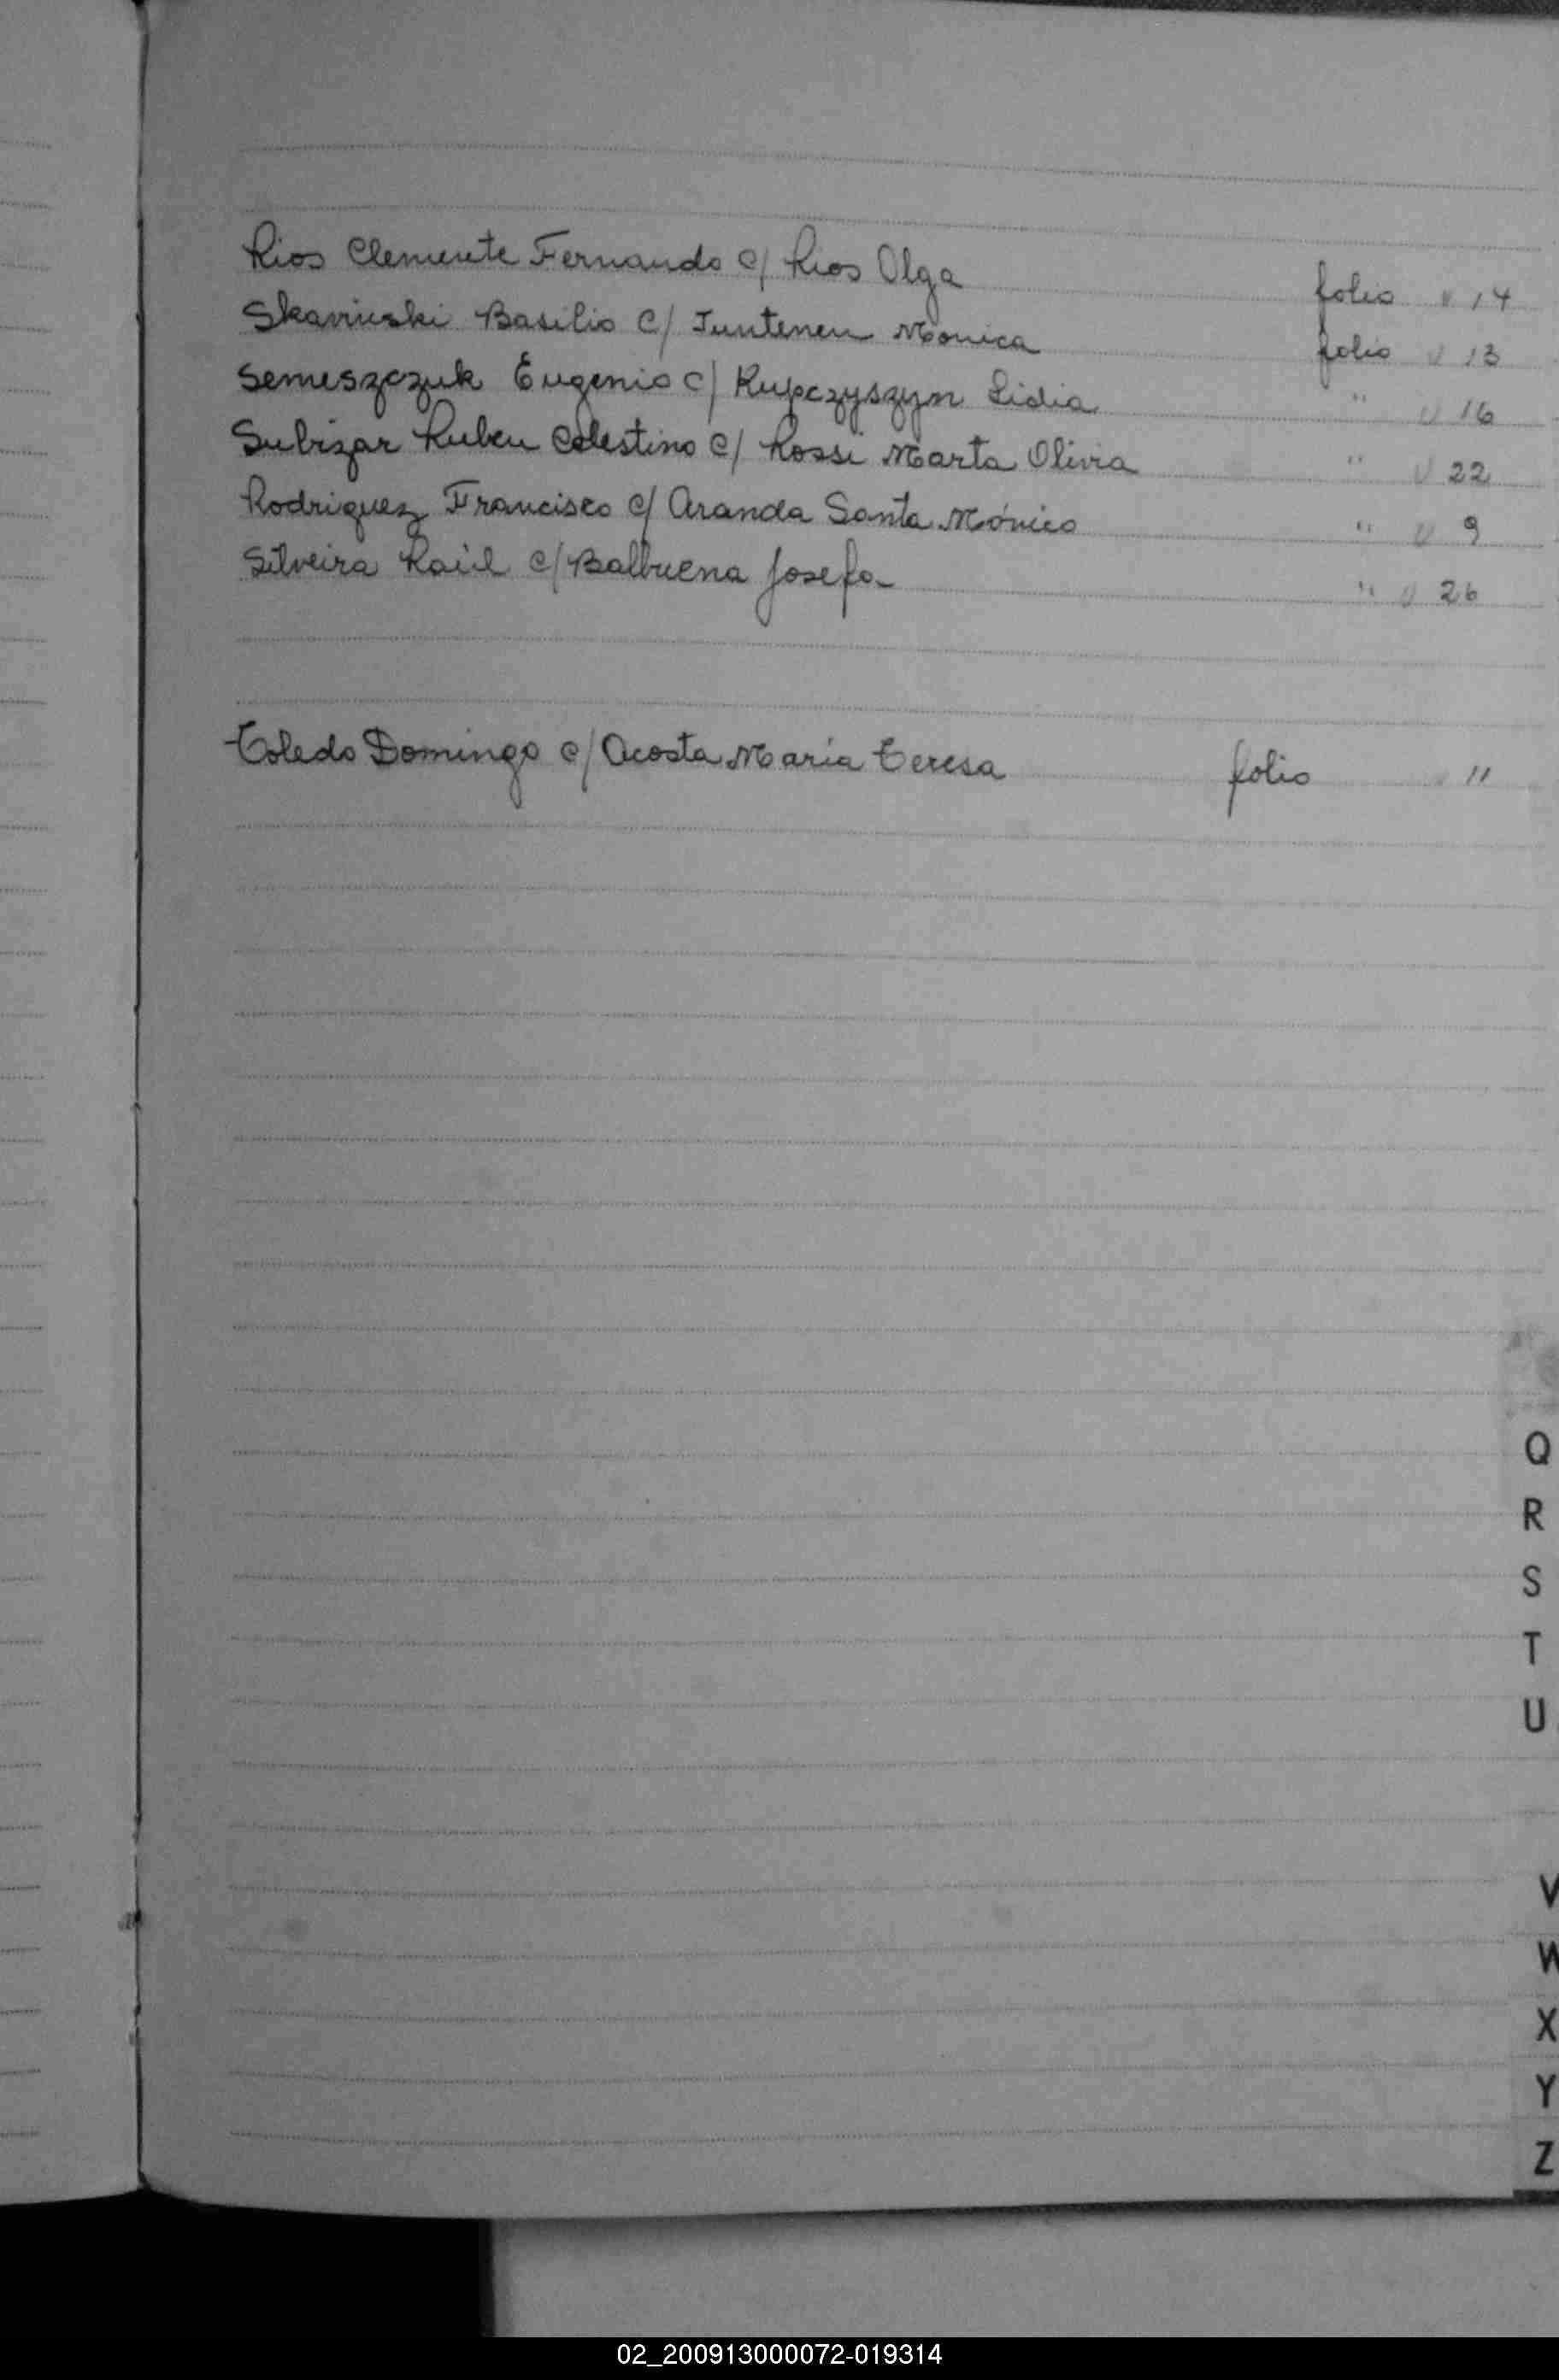 Rios Clemente Fernando c/ Rios Olga folio v 14
Skaviuski Basilio c/ Juntenen Mónica folio v 13
Semeszczuk Eugenio c/ Kupczyszyn Lidia " v 16
Subizar Ruben Celestino c/ Rossi Marta Olivia " v 22
Rodriguez Francisco c/ Aranda Santa Mónica " v 9
Silveira Raúl c/ Balbuena Josefa " v 26
Toledo Domingo c/ Acosta María Teresa folio v 11
Q
R
S
T
U
V
W
X
Y
Z
02_200913000072-019314